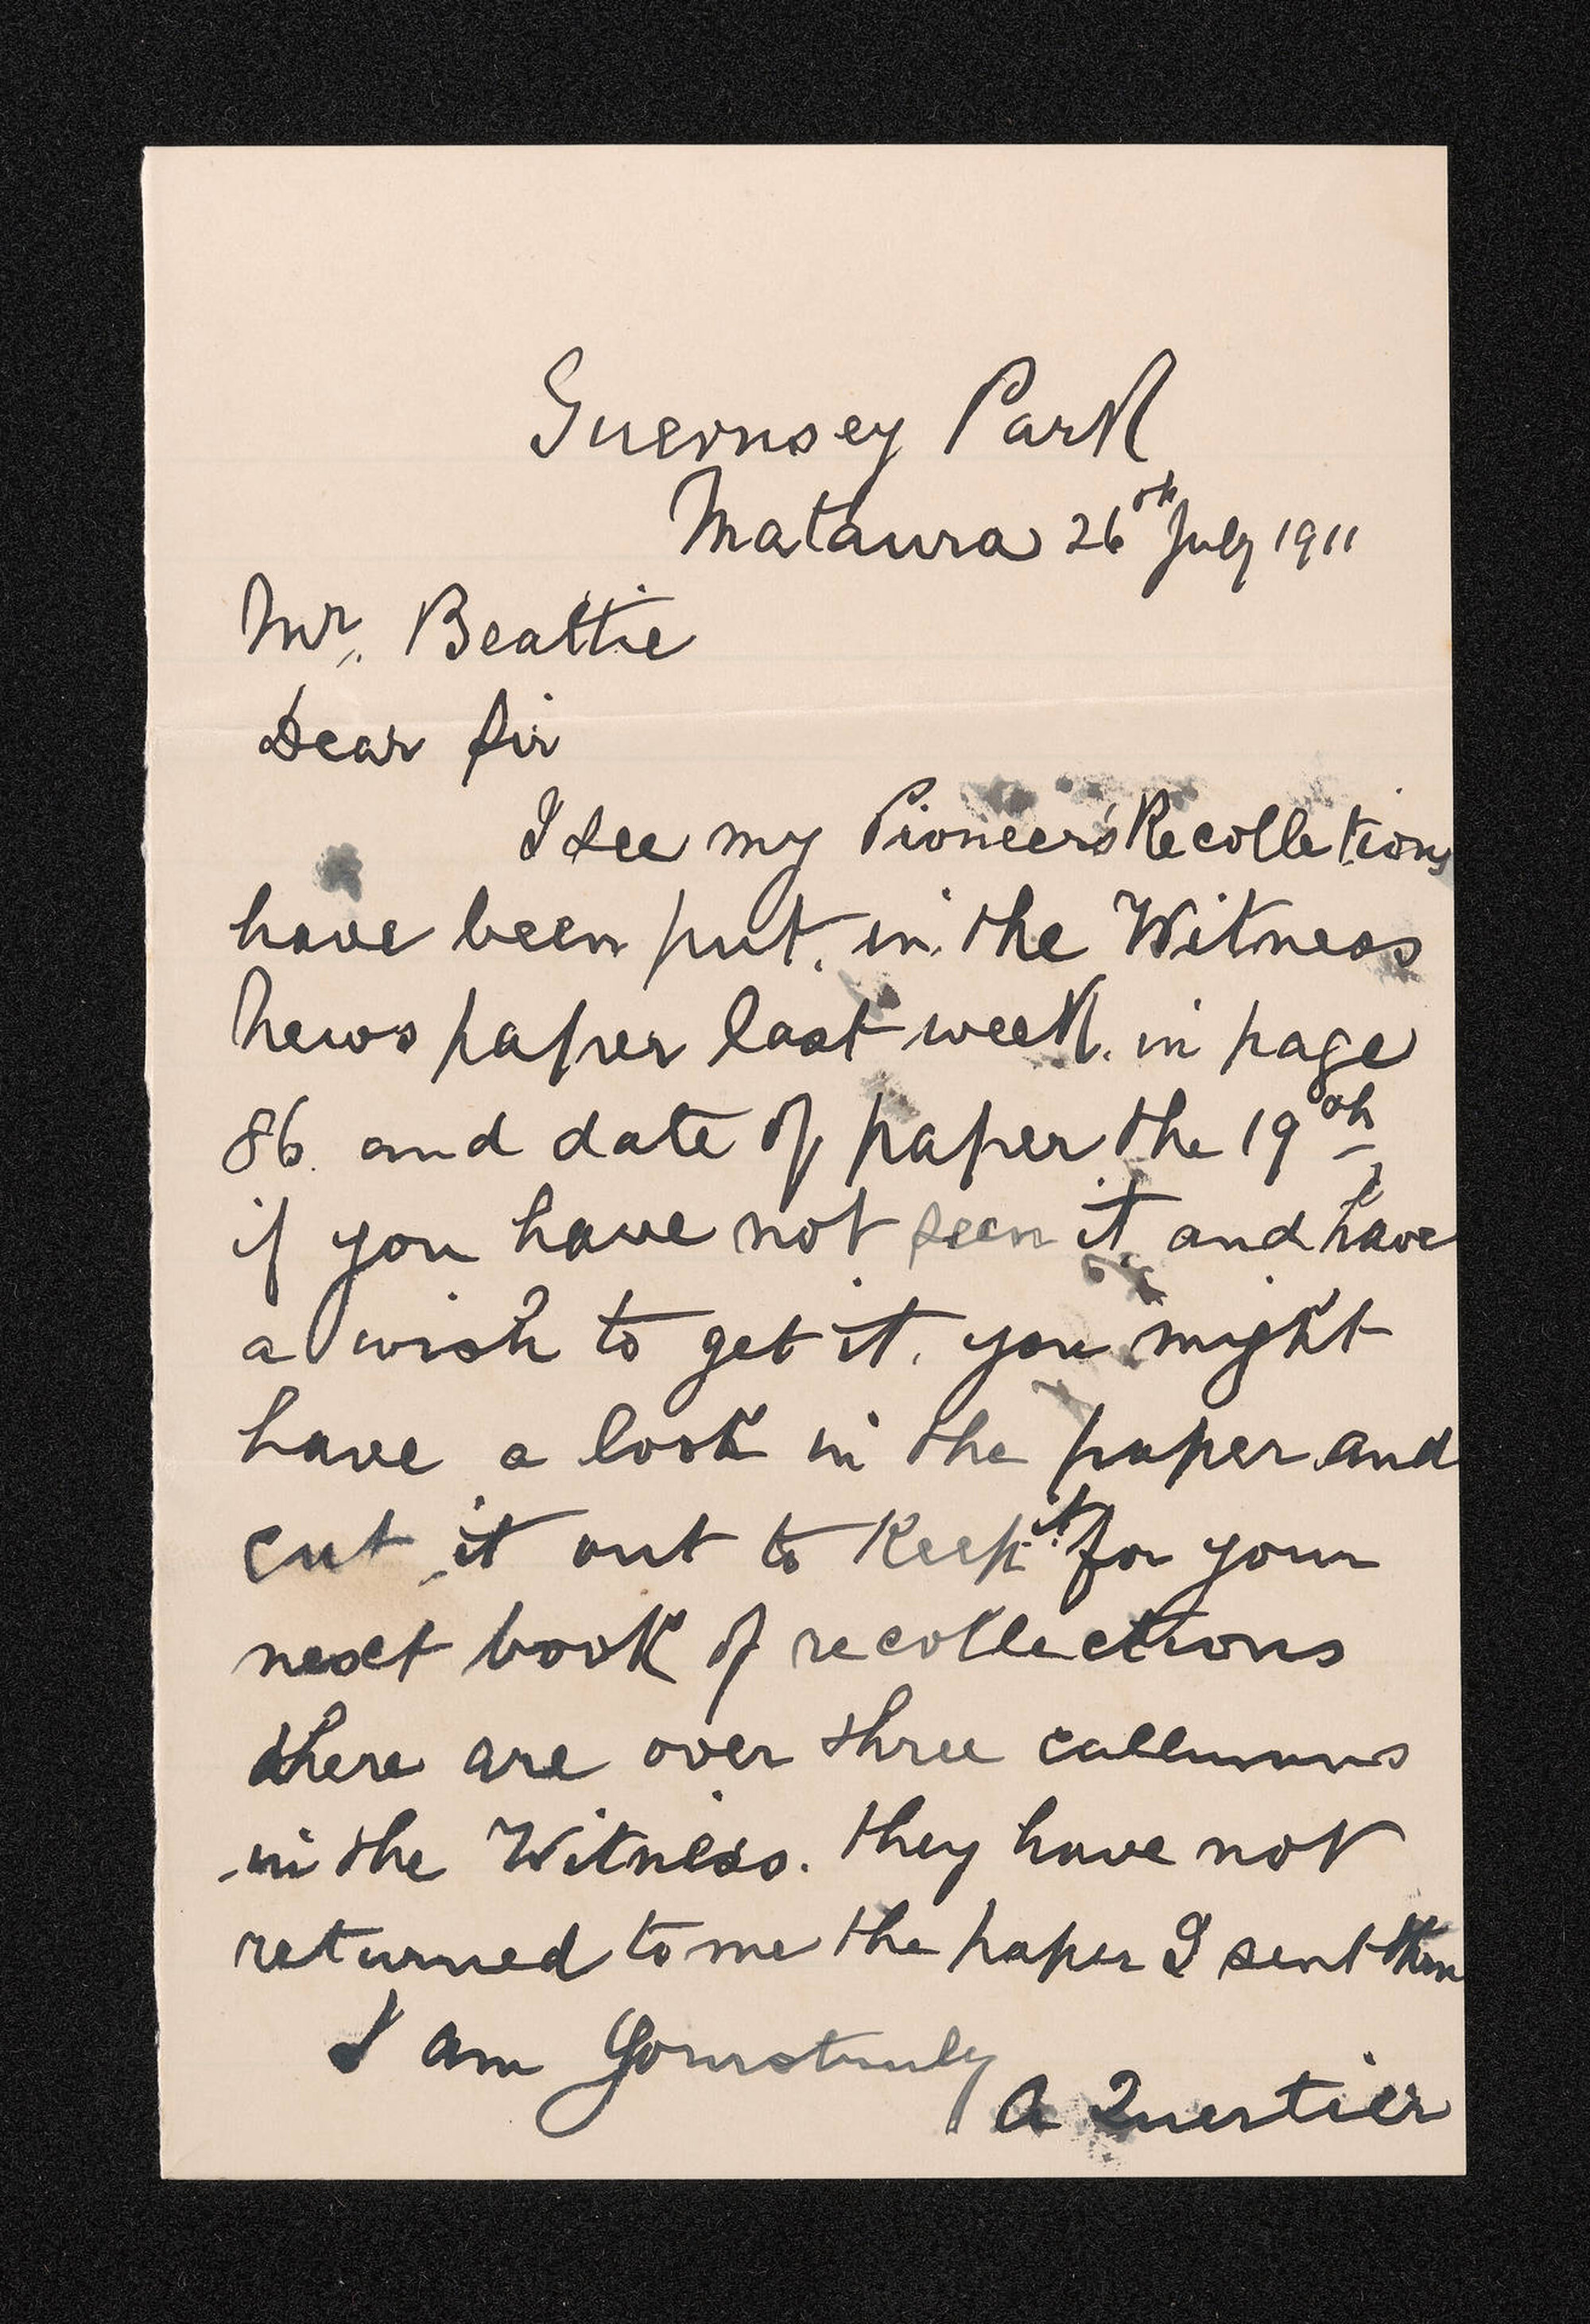 Guernsey Park
Mataura 26th July 1911
Mr. Beattie
Dear Sir
I see my Pioneer's Recolletions
have been put, in the Witness
News paper last week. in page
86. and date of paper the 19th
if you have not seen it and have
a wish to get it. you might
have a look in the paper and
cut it out to Keep it for your
next book of recollections
there are over three callumns
in the Witness. they have not
returned to me the paper I sent them
I am Yours truly
A Quertier